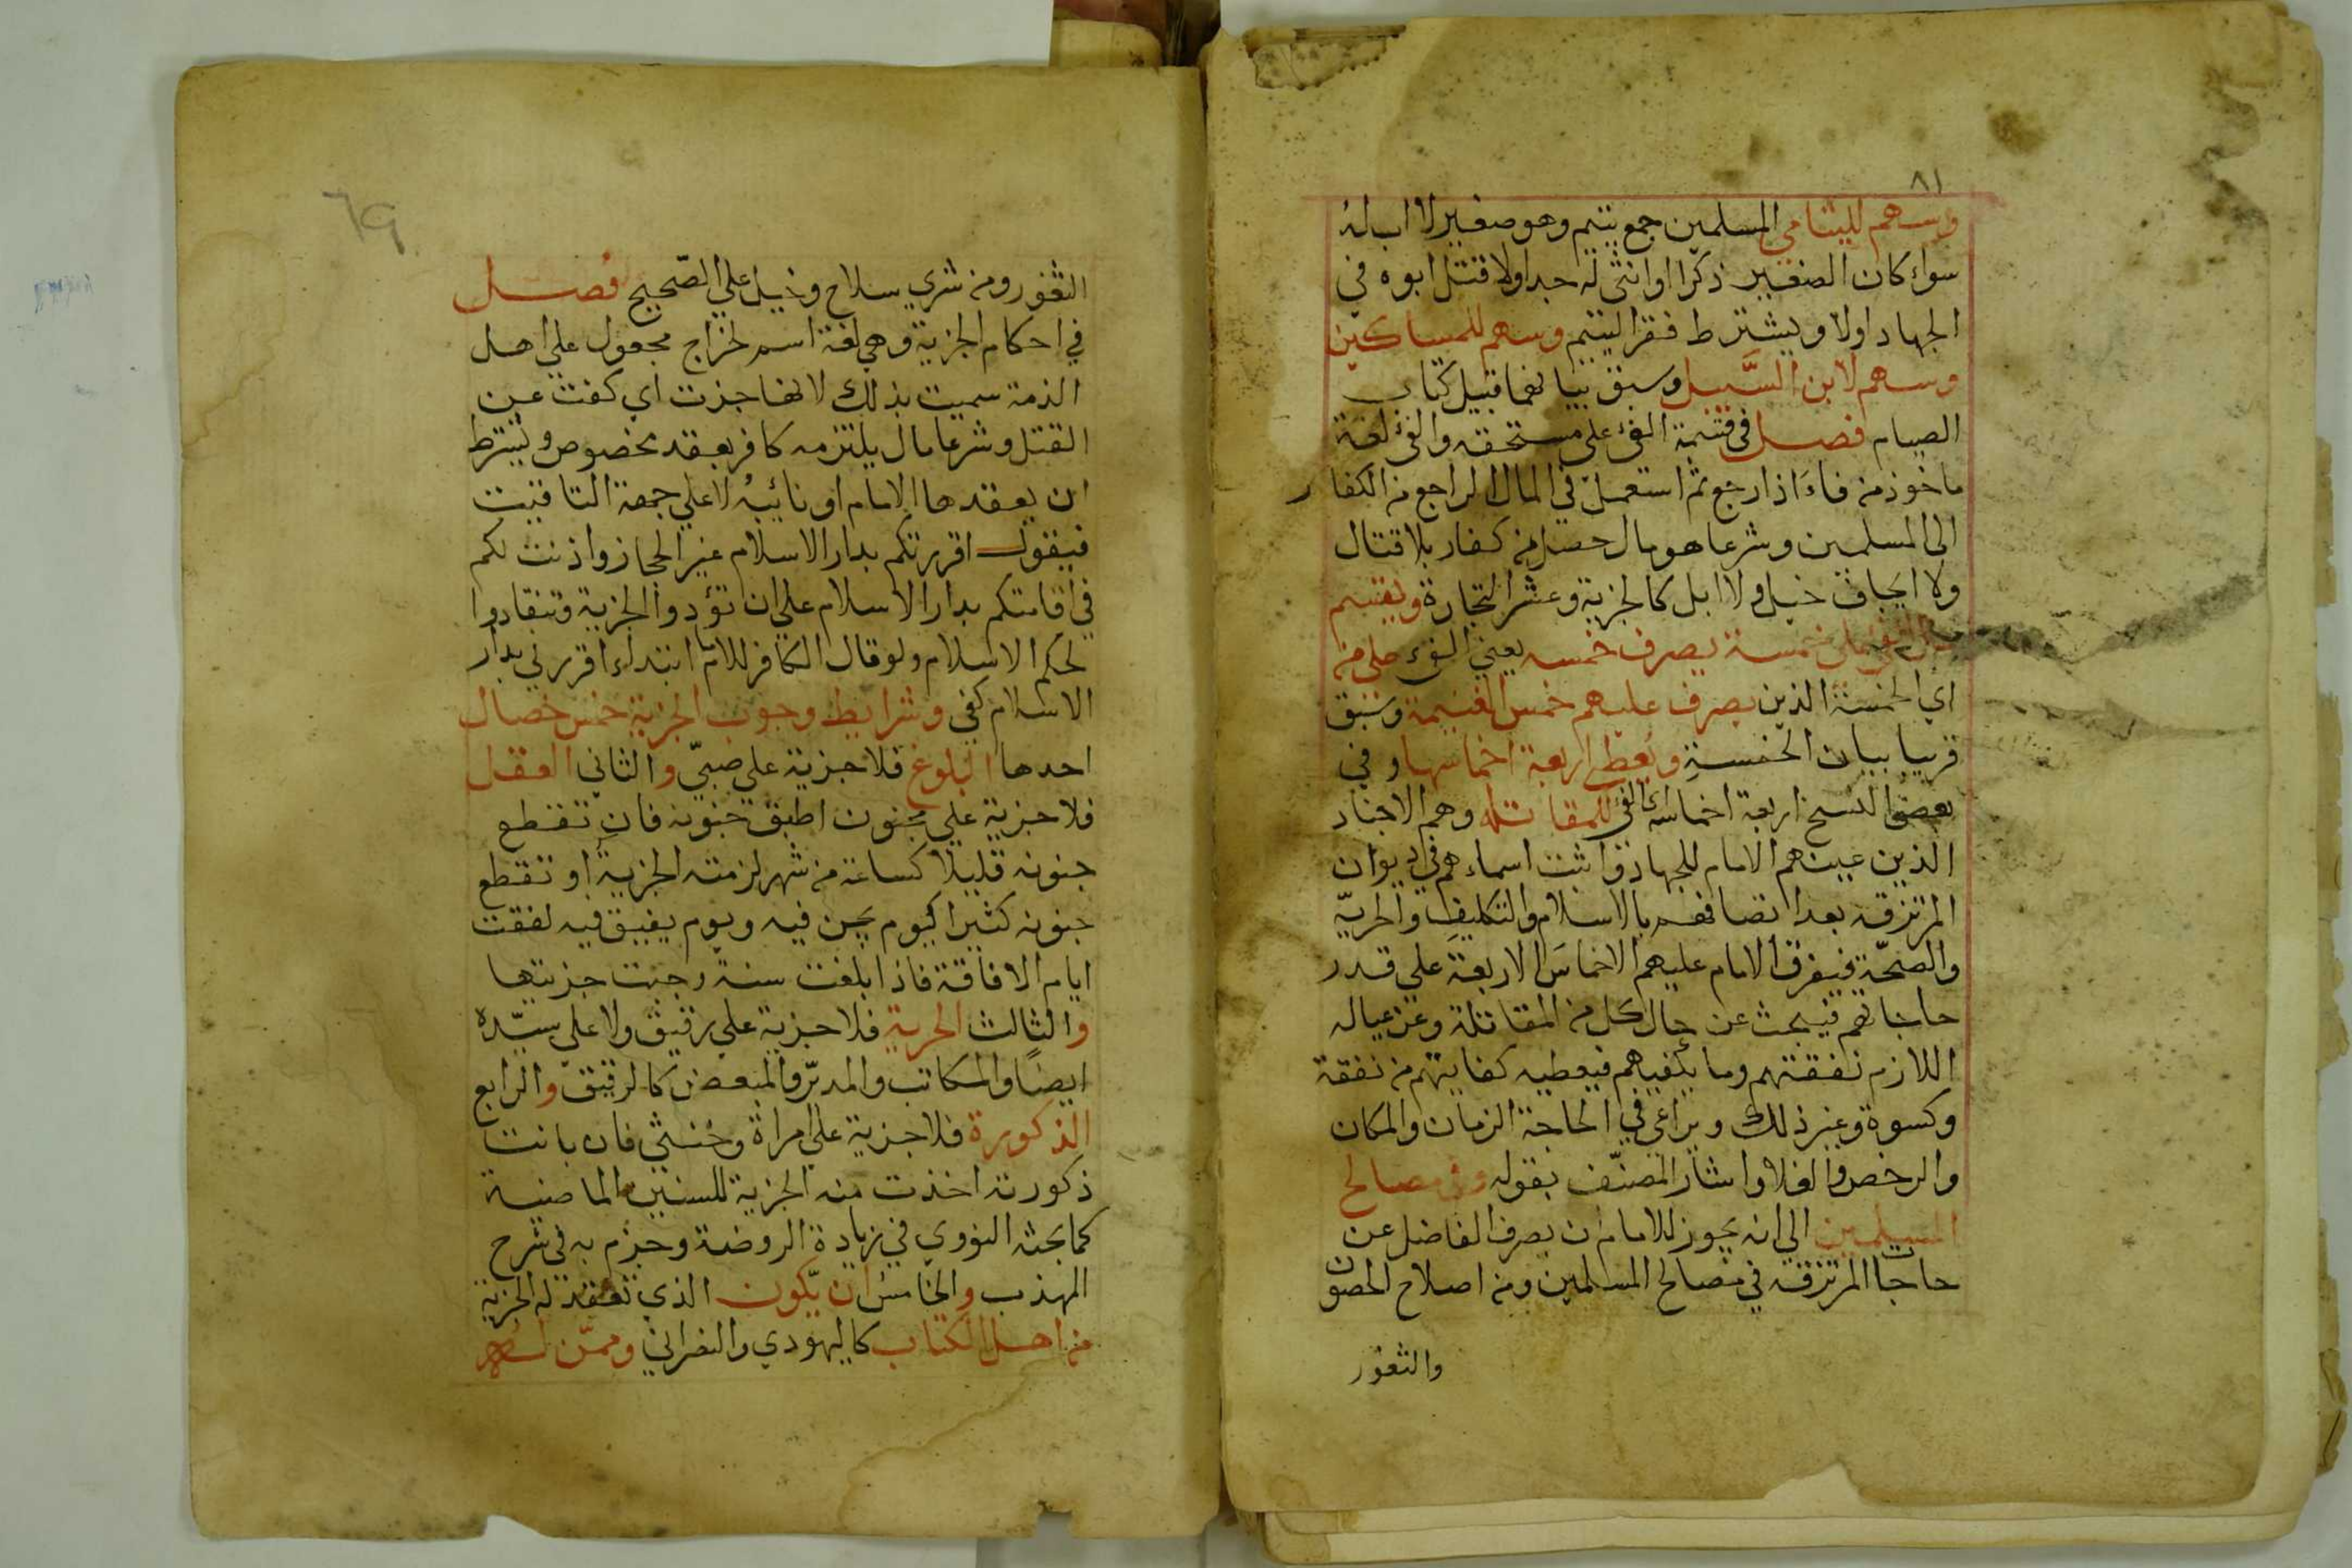 ٨١
وسهم لليتامي المسلمين جمع يتيم وهو صغير لا اب له
سواء كان الصغير ذكرا او انثى له جد اولا قتل ابوه في
الجهاد اولا ويشترط فقر اليتيم وسهم للمساكين
وسهم لابن السَّبيل وسبق بيانهما قبيل كتاب
الصيام فصل في قسمة الفئ على مستحقه والفئ لغة
ماخوذ من فاءَ اذا رجع ثم استعمل في المال الراجع من الكفار
الى المسلمين وشرعا هو مال حصل من كفار بلا قتال
ولا ايجاف خيل ولا ابل كالجزية وعشر التجارة ويقسم
مال الفئ على خمسة يصرف خمسه يعني الفئ على من
اي الخمسة الذين يصرف عليهم خمس الغنيمة وسبق
قريبا بيان الخمسةِ ويُعطي اربعة اخماسها وفي
بعض النسخ اربعة اخماسه اي الفئ للمقاتلة وهم الاجناد
الذين عينهم الامام للجهاد واثبت اسماءهم في ديوان
المرتزقه بعد اتصافهم بالاسلام والتكليفِ والحريّة
والصحّة فيفرق الامام عليهم الاخماسَ الاربعة علي قدر
حاجاتهم فيبحث عن حال كل من المقاتلة وعن عياله
اللازم نفقتهم وما يكفيهم فيعطيه كفايتهم من نفقة
وكسوة وغير ذلك ويراعي في الحاجة الزمان والمكان
والرخص والغلا واشار المصنّف بقوله وفي مصالح
المسلمين الي انه يجوز للامام ان يصرف الفاضل عن
حاجات المرتزقه في مصالح المسلمين ومن اصلاح الحصون
والثغور
69
الثغور ومن شري سلاح وخيل علي الصّحيح فصل
في احكام الجزية وهي لغة اسم لخراج مجعول علي اهل
الذمة سميت بذلك لانها جزت اي كفت عن
القتل وشرعا مال يلتزمه كافر بعقد مخصوص ويشترط
ان يعقدها الامام او نائبُه لا علي جهة التاقيت
فيقول اقررتكم بدار الاسلام غير الحجاز واذنت لكم
في اقامتكم بدار الاسلام علي ان تؤدوا الجزية وتنقادوا
لحكم الاسلام ولو قال الكافر للامام ابتداء اقررني بدار
الاسلام كفي وشرايط وجوب الجزية خمس خصال
احدها البلوغ فلا جزية علي صبيّ والثاني العقل
فلا جزية علي مجنون اطبق جنونه فان تقطع
جنونه قليلا كساعة من شهر لزمته الجزية او تقطع
جنونه كثيرا كيوم يجن فيه ويوم يفيق فيه لفقت
ايام الافاقة فاذا بلغت سنة وجبت جزيتها
والثالث الحرية فلا جزية علي رقيق ولا علي سيّده
ايضًا والمكاتب والمدبّر والمبعض كالرقيق والرابع
الذكورة فلا جزية علي امراة وخُنثي فان بانت
ذكورته اخذت منه الجزية للسنين الماضية
كما بحثه النووي في زيادة الروضة وجزم به في شرح
المهذب والخامس ان يّكون الذي تعقد له الجزية
من اهل الكتاب كاليهودي والنصراني وممّن له